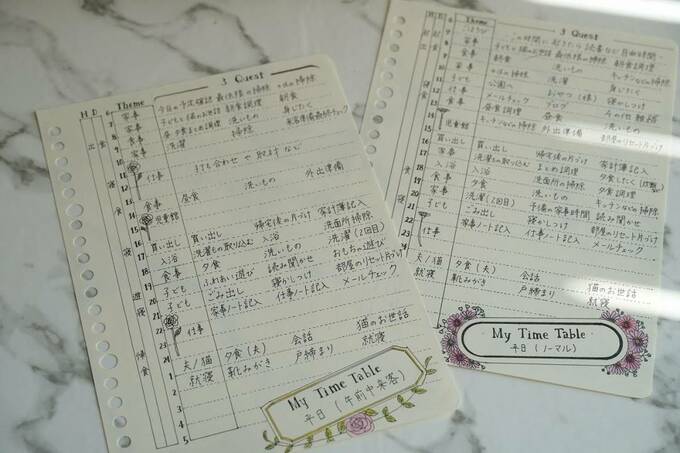 3 Quest
H D Theme
6 家事 今日の予定確認 最低限の掃除 +αの掃除
7 家事 子どもと猫のお世話 朝食調理 朝食
8 食事 昼夕まとめ調理 洗いもの 身じたく
9 家事 洗濯 掃除 来客準備最終チェック
10
11 打ち合わせや取材など
12 仕事
13 昼食 洗いもの 外出準備
14
15 児童館
16 買い出し 買い出し 帰宅後の片づけ 家計簿記入
17 入浴 洗濯もの取り込み 入浴 洗面所掃除
18 食事 夕食 洗いもの 洗濯(2回目)
19 子ども ふれあい遊び 読み聞かせ おもちゃ遊び
20 子ども ごみ出し 寝かしつけ 部屋のリセット片づけ
21 家事ノート記入 仕事ノート記入 メールチェック
22 仕事
23
24 夫/猫 夕食(夫) 会話 猫のお世話
1 就寝 靴みがき 戸締まり 就寝
2
3
4
5
My Time Table
平日(午前中来客)
3 Quest
H D Theme
この時間に起きたら読書など自由時間
家事 子どもと猫のお世話 最低限の掃除 朝食調理
食事 朝食 洗いもの
家事 +αの掃除 洗濯 キッチンなどの掃除
子ども 公園へ 身じたく
メールチェック おやつ(様) 寝かしつけ
食事 昼食調理 ブログ その他雑務
児童館 キッチンなどの掃除 外出準備 洗いもの
買い出し 買い出し 帰宅後の片づけ 部屋のリセット片づけ
家事 洗濯もの取り込み まとめ調理 家計簿記入
入浴 入浴 洗面所の掃除
食事 夕食 洗いもの 夕食調理
家事 洗濯(2回目) キッチンなどの掃除
子ども ごみ出し 寝かしつけ 読み聞かせ
仕事 家事ノート記入 仕事ノート記入 部屋のリセット片づけ
メールチェック
夫/猫 夕食(夫) 会話 猫のお世話
就寝 靴みがき 戸締まり 就寝
My Time Table
平日(ノーマル)